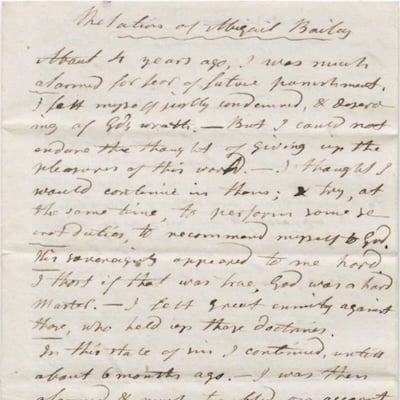 Relation of Abigail Bailey
About 4 years ago, I was much
alarmed for fear of future punishment.
I felt myself justly condemned, & deserv-
ing of God's wrath. — But I could not
endure the thought of giving up the
pleasures of this world. — I thought I
would continue in them; & try, at
the same time, to perform some se-
cret duties, to recommend myself to God.
His sovereignty appeared to me hard
I thot if that was true, God was a hard
Master. — I felt great enmity against
those, who held up those doctrines.
In this state of sin I continued, until
about 6 months ago. — I was then
alarmed & much troubled on account